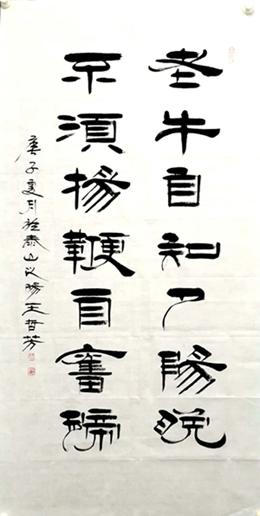 老牛自知夕陽晚
不須揚鞭自奮蹄
庚子夏月於泰山之陽王哲芳